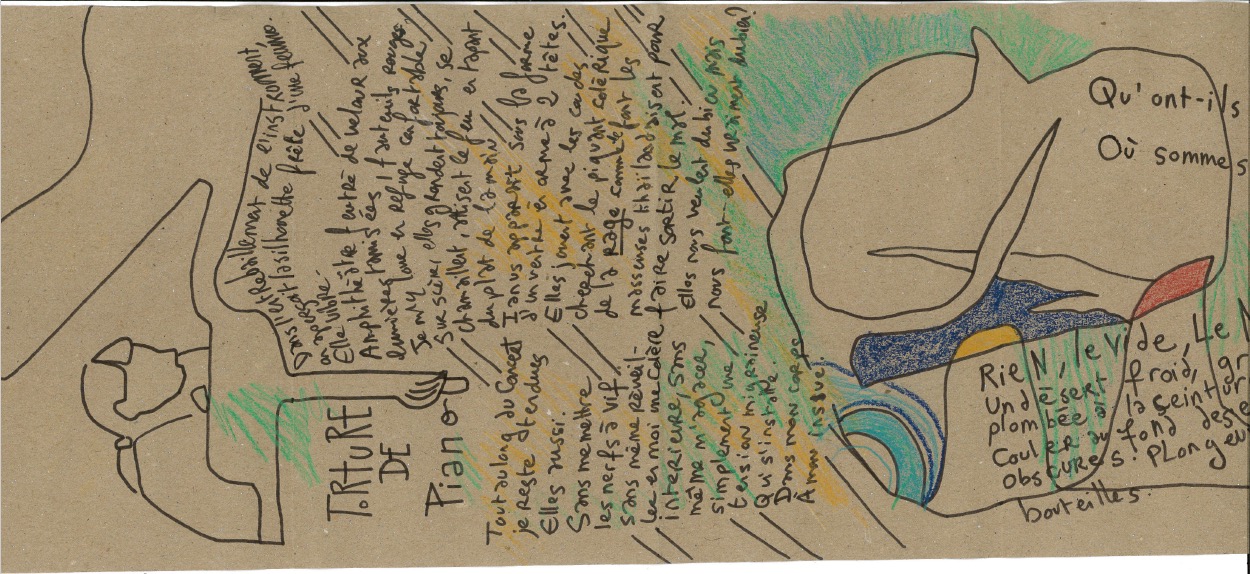 TORTURE
DE
Piano
Dans l'entrebaillement de l'instrument,
on aperçoit la silhouette frêle d'une femme.
Elle vibre.
Amphithéâtre feutré de velour aux
lumières tamisées, fauteuils rouges.
Je m'y love en refuge confortable.
Sur scène, elles grondent toujours, se
chamaillent, attisent le feu en tapant
du plat de la main
Janus apparaît sous la forme
d'un ventre énorme à 2 têtes.
Elles jouent avec les cordes
cherchant le piquant colérique
de la rage comme le font les
masseuses thaïlandaises pour
faire sortir le mal.
Elles nous veulent du bien mais
nous font-elles vraiment du bien?
Tout au long du Concert
je reste détendue
Elles aussi.
Sans me mettre
les nerfs à vif
sans même réveil-
ler en moi une colère
intérieure, sans
même m'agacer,
simplement une
tension migraineuse
Qui s'installe
Dans mon corps
À mon insu.
Qu'ont-ils
Où sommes
RieN, le vide, Le N
Un désert froid, gr
plombée à la ceinture
Couler au fond des
obscures. Plongeur
bouteilles.